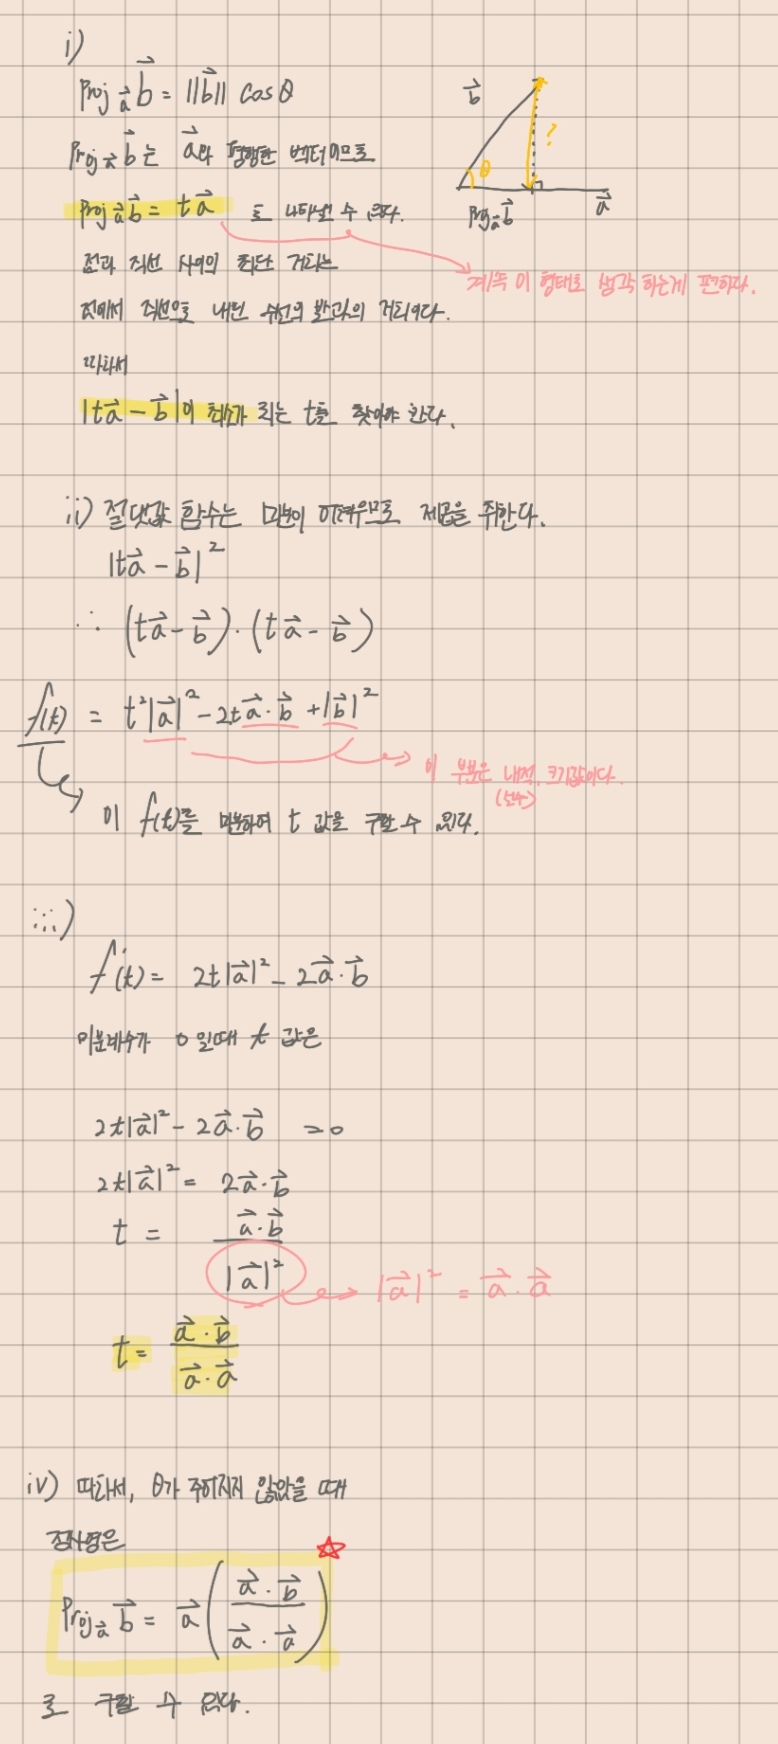 i)
Proj_a⃗ b⃗ = ||b⃗|| cosθ
b⃗
?
θ
Proj_a⃗ b⃗
a⃗
Proj_a⃗ b⃗는 a⃗와 평행한 벡터이므로
Proj_a⃗ b⃗ = ta⃗ 로 나타낼 수 있다.
계속 이 형태로 생각 하는게 편하다.
점과 직선 사이의 최단 거리는
점에서 직선으로 내린 수선의 발과의 거리이다.
따라서
|ta⃗ - b⃗|이 최소가 되는 t를 찾아야 한다.
ii) 절댓값 함수는 미분이 어려우므로 제곱을 취한다.
|ta⃗ - b⃗|²
∴ (ta⃗ - b⃗)·(ta⃗ - b⃗)
f(t) = t²|a⃗|² - 2ta⃗·b⃗ + |b⃗|²
이 부분은 내적, 크기값이다.
(상수)
이 f(t)를 미분하여 t 값을 구할 수 있다.
iii)
f'(t) = 2t|a⃗|² - 2a⃗·b⃗
미분계수가 0일때 t 값은
2t|a⃗|² - 2a⃗·b⃗ = 0
2t|a⃗|² = 2a⃗·b⃗
t = a⃗·b⃗ / |a⃗|²
|a⃗|² = a⃗·a⃗
t = a⃗·b⃗ / a⃗·a⃗
iv) 따라서, θ가 주어지지 않았을 때
정사영은
Proj_a⃗ b⃗ = a⃗ (a⃗·b⃗ / a⃗·a⃗)
로 구할 수 있다.